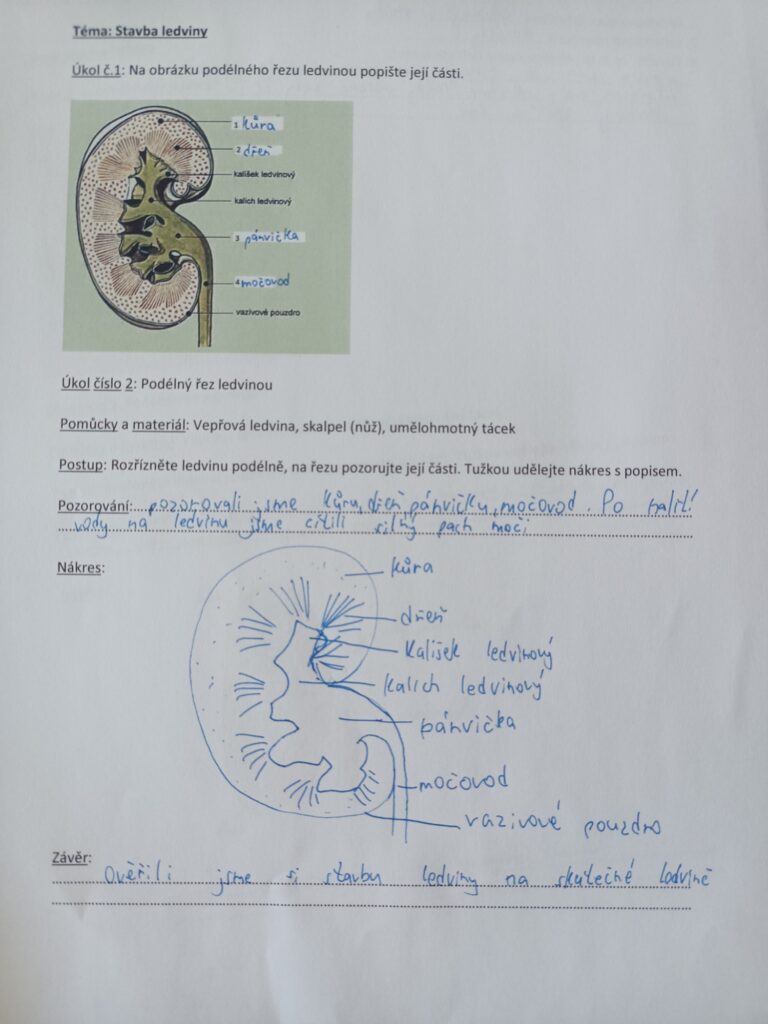 Téma: Stavba ledviny
Úkol č.1: Na obrázku podélného řezu ledvinou popište její části.
1 kůra
2 dřeň
kalíšek ledvinový
kalich ledvinový
3 pánvička
4 močovod
vazivové pouzdro
Úkol číslo 2: Podélný řez ledvinou
Pomůcky a materiál: Vepřová ledvina, skalpel (nůž), umělohmotný tácek
Postup: Rozřízněte ledvinu podélně, na řezu pozorujte její části. Tužkou udělejte nákres s popisem.
Pozorování: pozorovali jsme kůru, dřeň, pánvičku, močovod. Po nalití
vody na ledvinu jsme cítili silný pach moči
Nákres:
kůra
dřeň
kalíšek ledvinový
kalich ledvinový
pánvička
močovod
vazivové pouzdro
Závěr:
Ověřili jsme si stavbu ledviny na skutečné ledvině